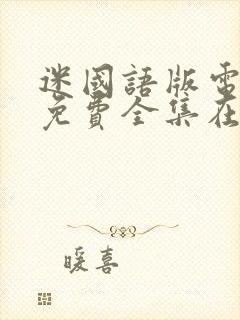 迷國語版電
免費全集在
暖喜